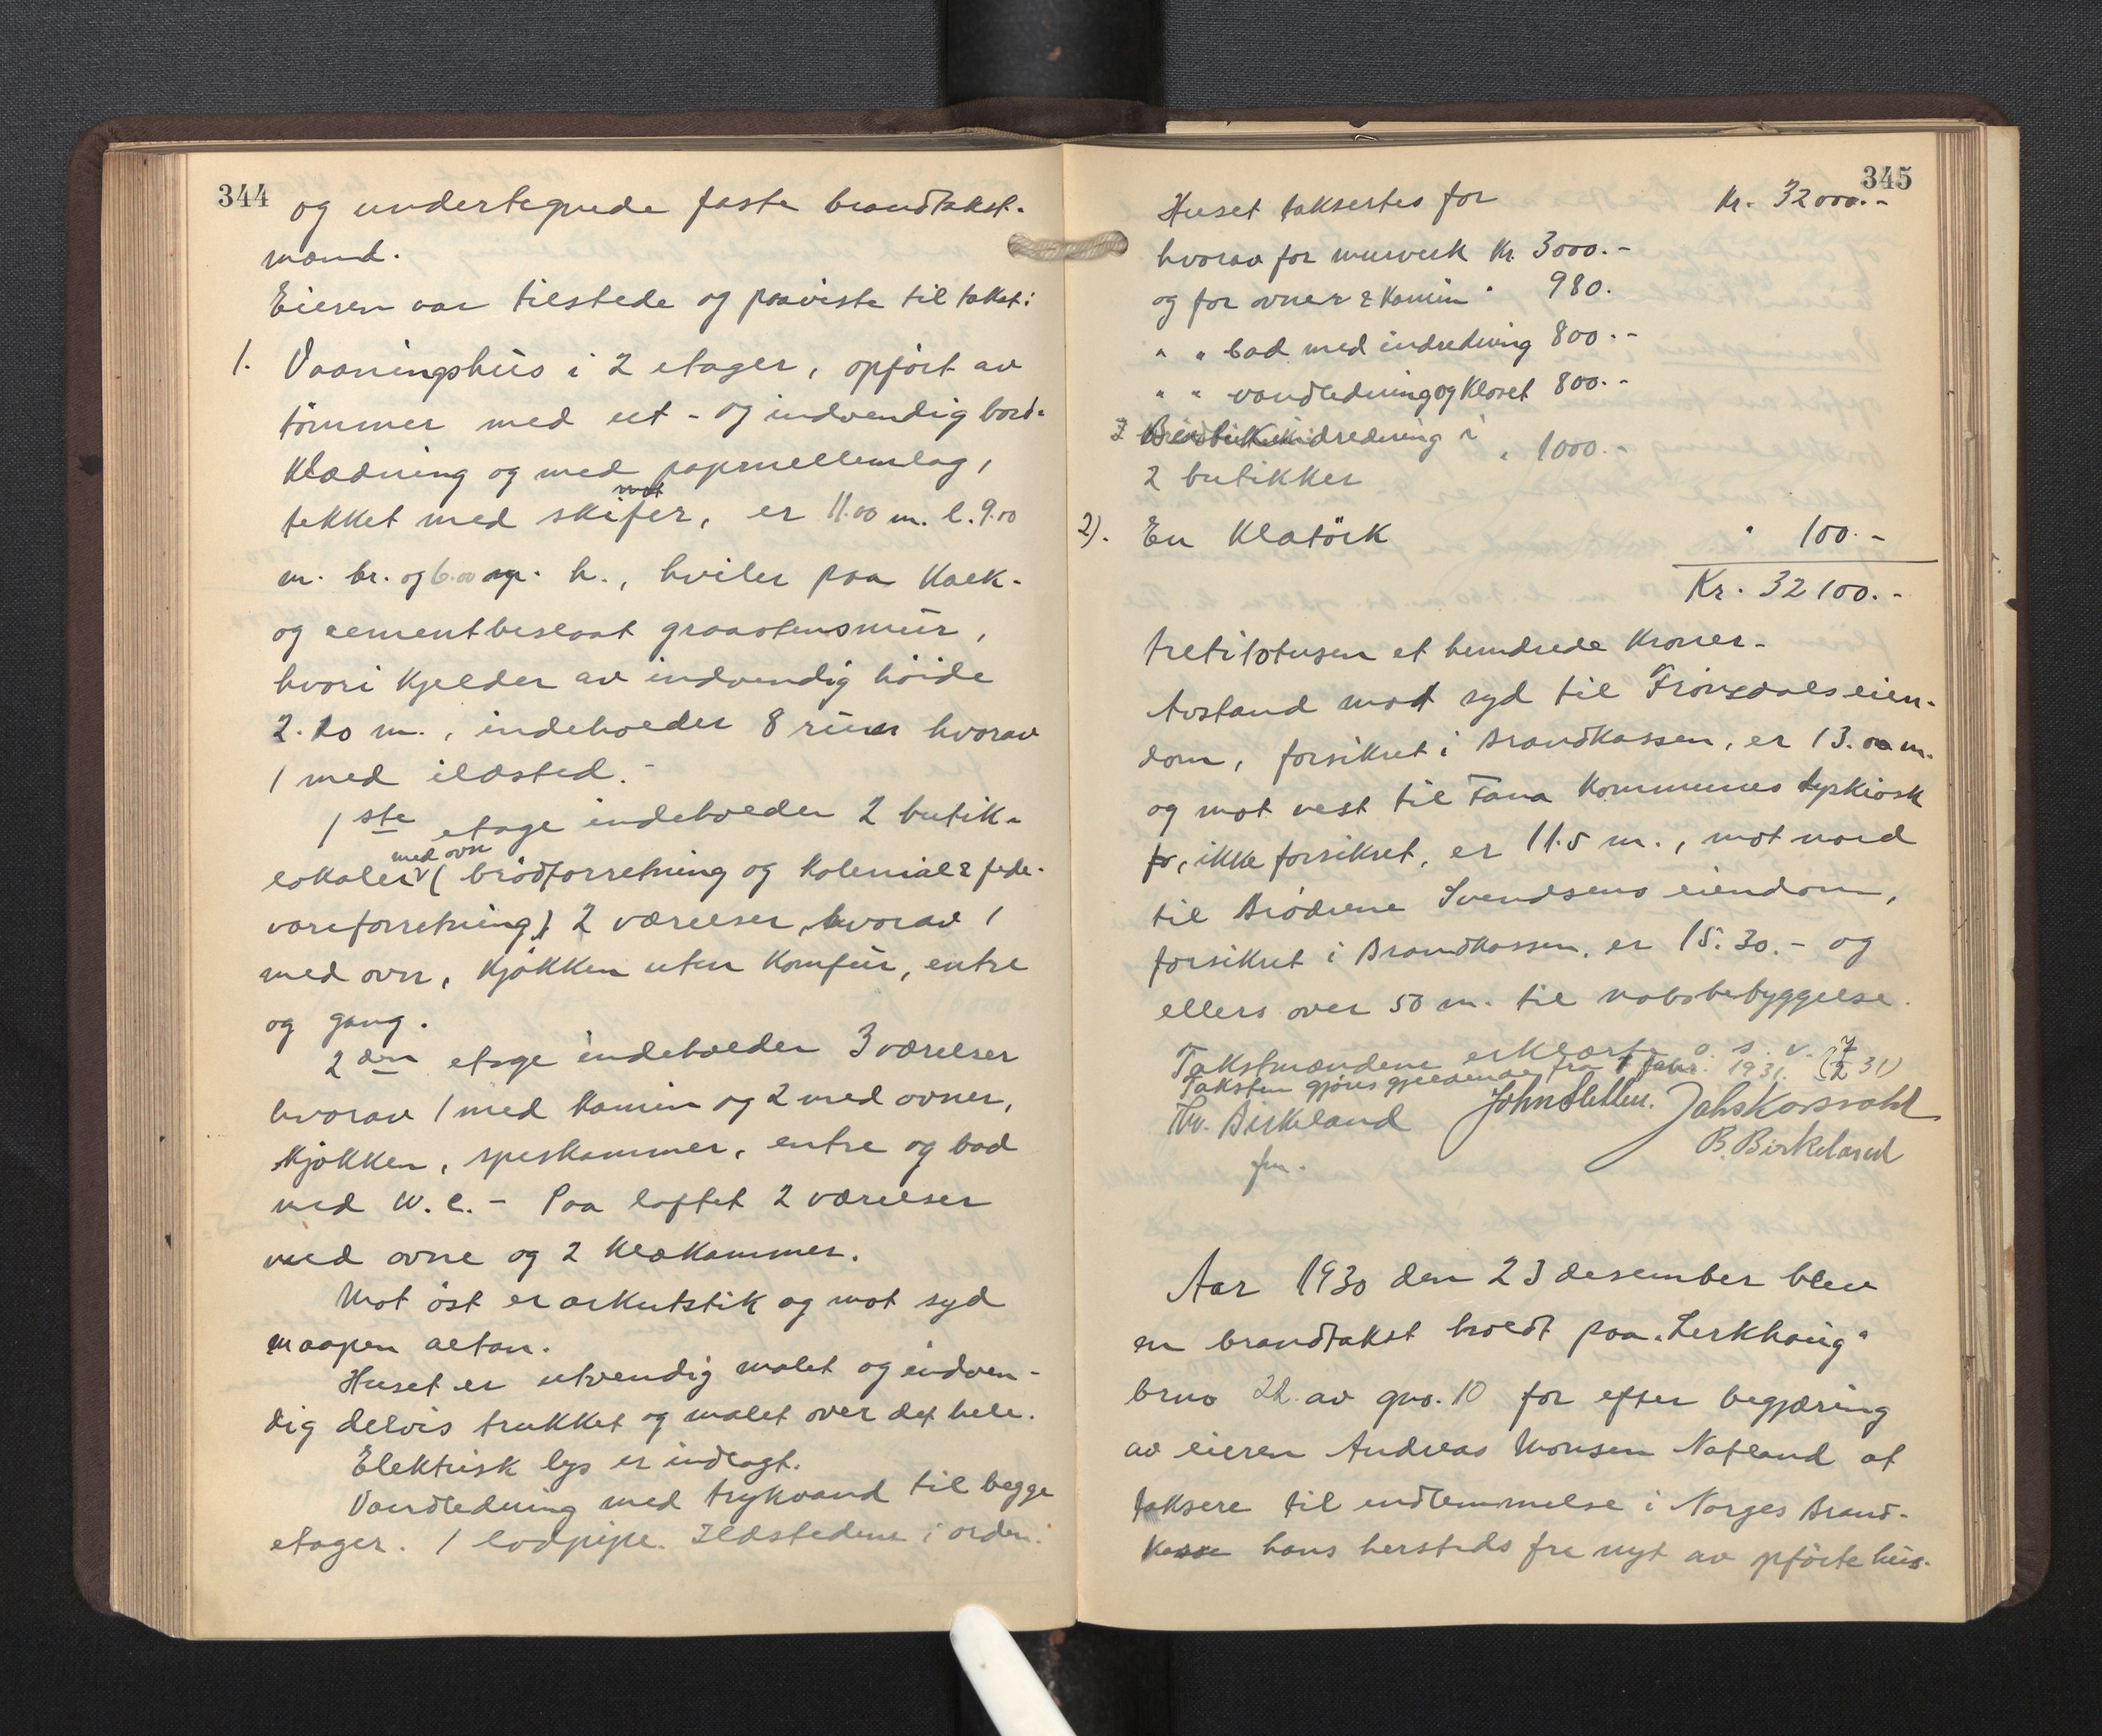 344
og undertegnede faste brandtakst-
mænd.
Eieren var tilstede og paaviste til takst:
1. Vaaningshus i 2 etager, opført av
tømmer med ut- og indvendig bord-
klædning og med papmellemlag,
tekket med skifer, er 11.00 m. l. 9.00
m. br. og 6.00 m. h., hviler paa kalk-
og cementbeslaat graastensmur,
hvori kjelder av indvendig höide
2.20 m., indeholder 8 rum hvorav
1 med ildsted.-
1ste etage indeholder 2 butik-
med ovn
lokaler (brödforretning og kolonial & fede-
vareforretning), 2 værelser, hvorav 1
med ovn, kjøkken uten komfur, entre
og gang.
2den etage indeholder 3 værelser
hvorav 1 med kamin og 2 med ovner,
kjøkken, speskammer, entre og bad
med W.C. - Paa loftet 2 værelser
med ovne og 2 klækammer.
Mot öst er arkutstik og mot syd
aapen altan.
Huset er utvendig malet og indven-
dig delvis trukket og malet over det hele.
Elektrisk lys er indlagt.
Vandledning med trykvand til begge
etager. 1 lodpipe. Ildstedene i orden.
345
Huset taksertes for Kr. 32000.-
hvorav for murverk Kr. 3000.-
og for ovner & kamin " 980.
" " bad med indredning 800.-
" " vandledning og kloset 800.-
indredning i " 1000.-
2 butikker
2). En Klatörk " 100.-
Kr. 32100.-
trettitotusen et hundrede kroner.
Avstand mot syd til Frönsdals eien-
dom, forsikret i Brandkassen, er 13.00 m.
og mot vest til Fana Kommunes lyskiosk
, ikke forsikret, er 11.5 m., mot nord
til Brödrene Svendsens eiendom,
forsikret i Brandkassen, er 15.30.- og
ellers over 50 m. til nabobebyggelse.
Takstmændene erklærte o. s. v. (7/2 31)
Taksten gjøres gjeldende fra 1 1931.
Hv. Birkeland John Sletten.
B. Birkeland
fm.
Aar 1930 den 23 desember blev
en brandtakst holdt paa "Lerkhaug"
bruo 22 av gno. 10 for efter begjæring
av eieren Andreas Monsen Natland at
taksere til indlemmelse i Norges Brand-
kasse hans hersteds fra nyt av opförte hus-